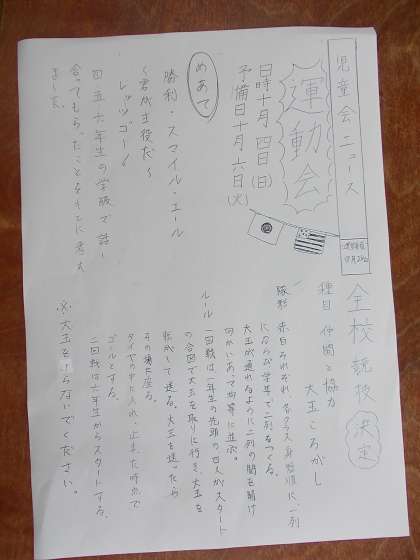 児童会ニュース
運動会
日時十月四日(日)
予備日十月六日(火)
めあて
勝利・スマイル・エール
〜君が主役だ〜
レッツゴー!
四五六年生の学級で話し
合ってもらったことをもとに考え
ました。
全校競技
決定
種目 仲間と協力
大玉ころがし
隊形 赤白それぞれ、各クラス身長順に一列
にならび学年で二列をつくる。
大玉が通れるように二列の間を開け
向かいあって均等に並ぶ。
ルール
一回戦は一年生の先頭の四人がスタート
の合図で大玉を取りに行き、大玉を
転がして送る。大玉を送ったら
その場に座る。
タイヤの中に入れ、止まった時点で
ゴールとする。
二回戦は六年生からスタートする。
※大玉をけらないでください。